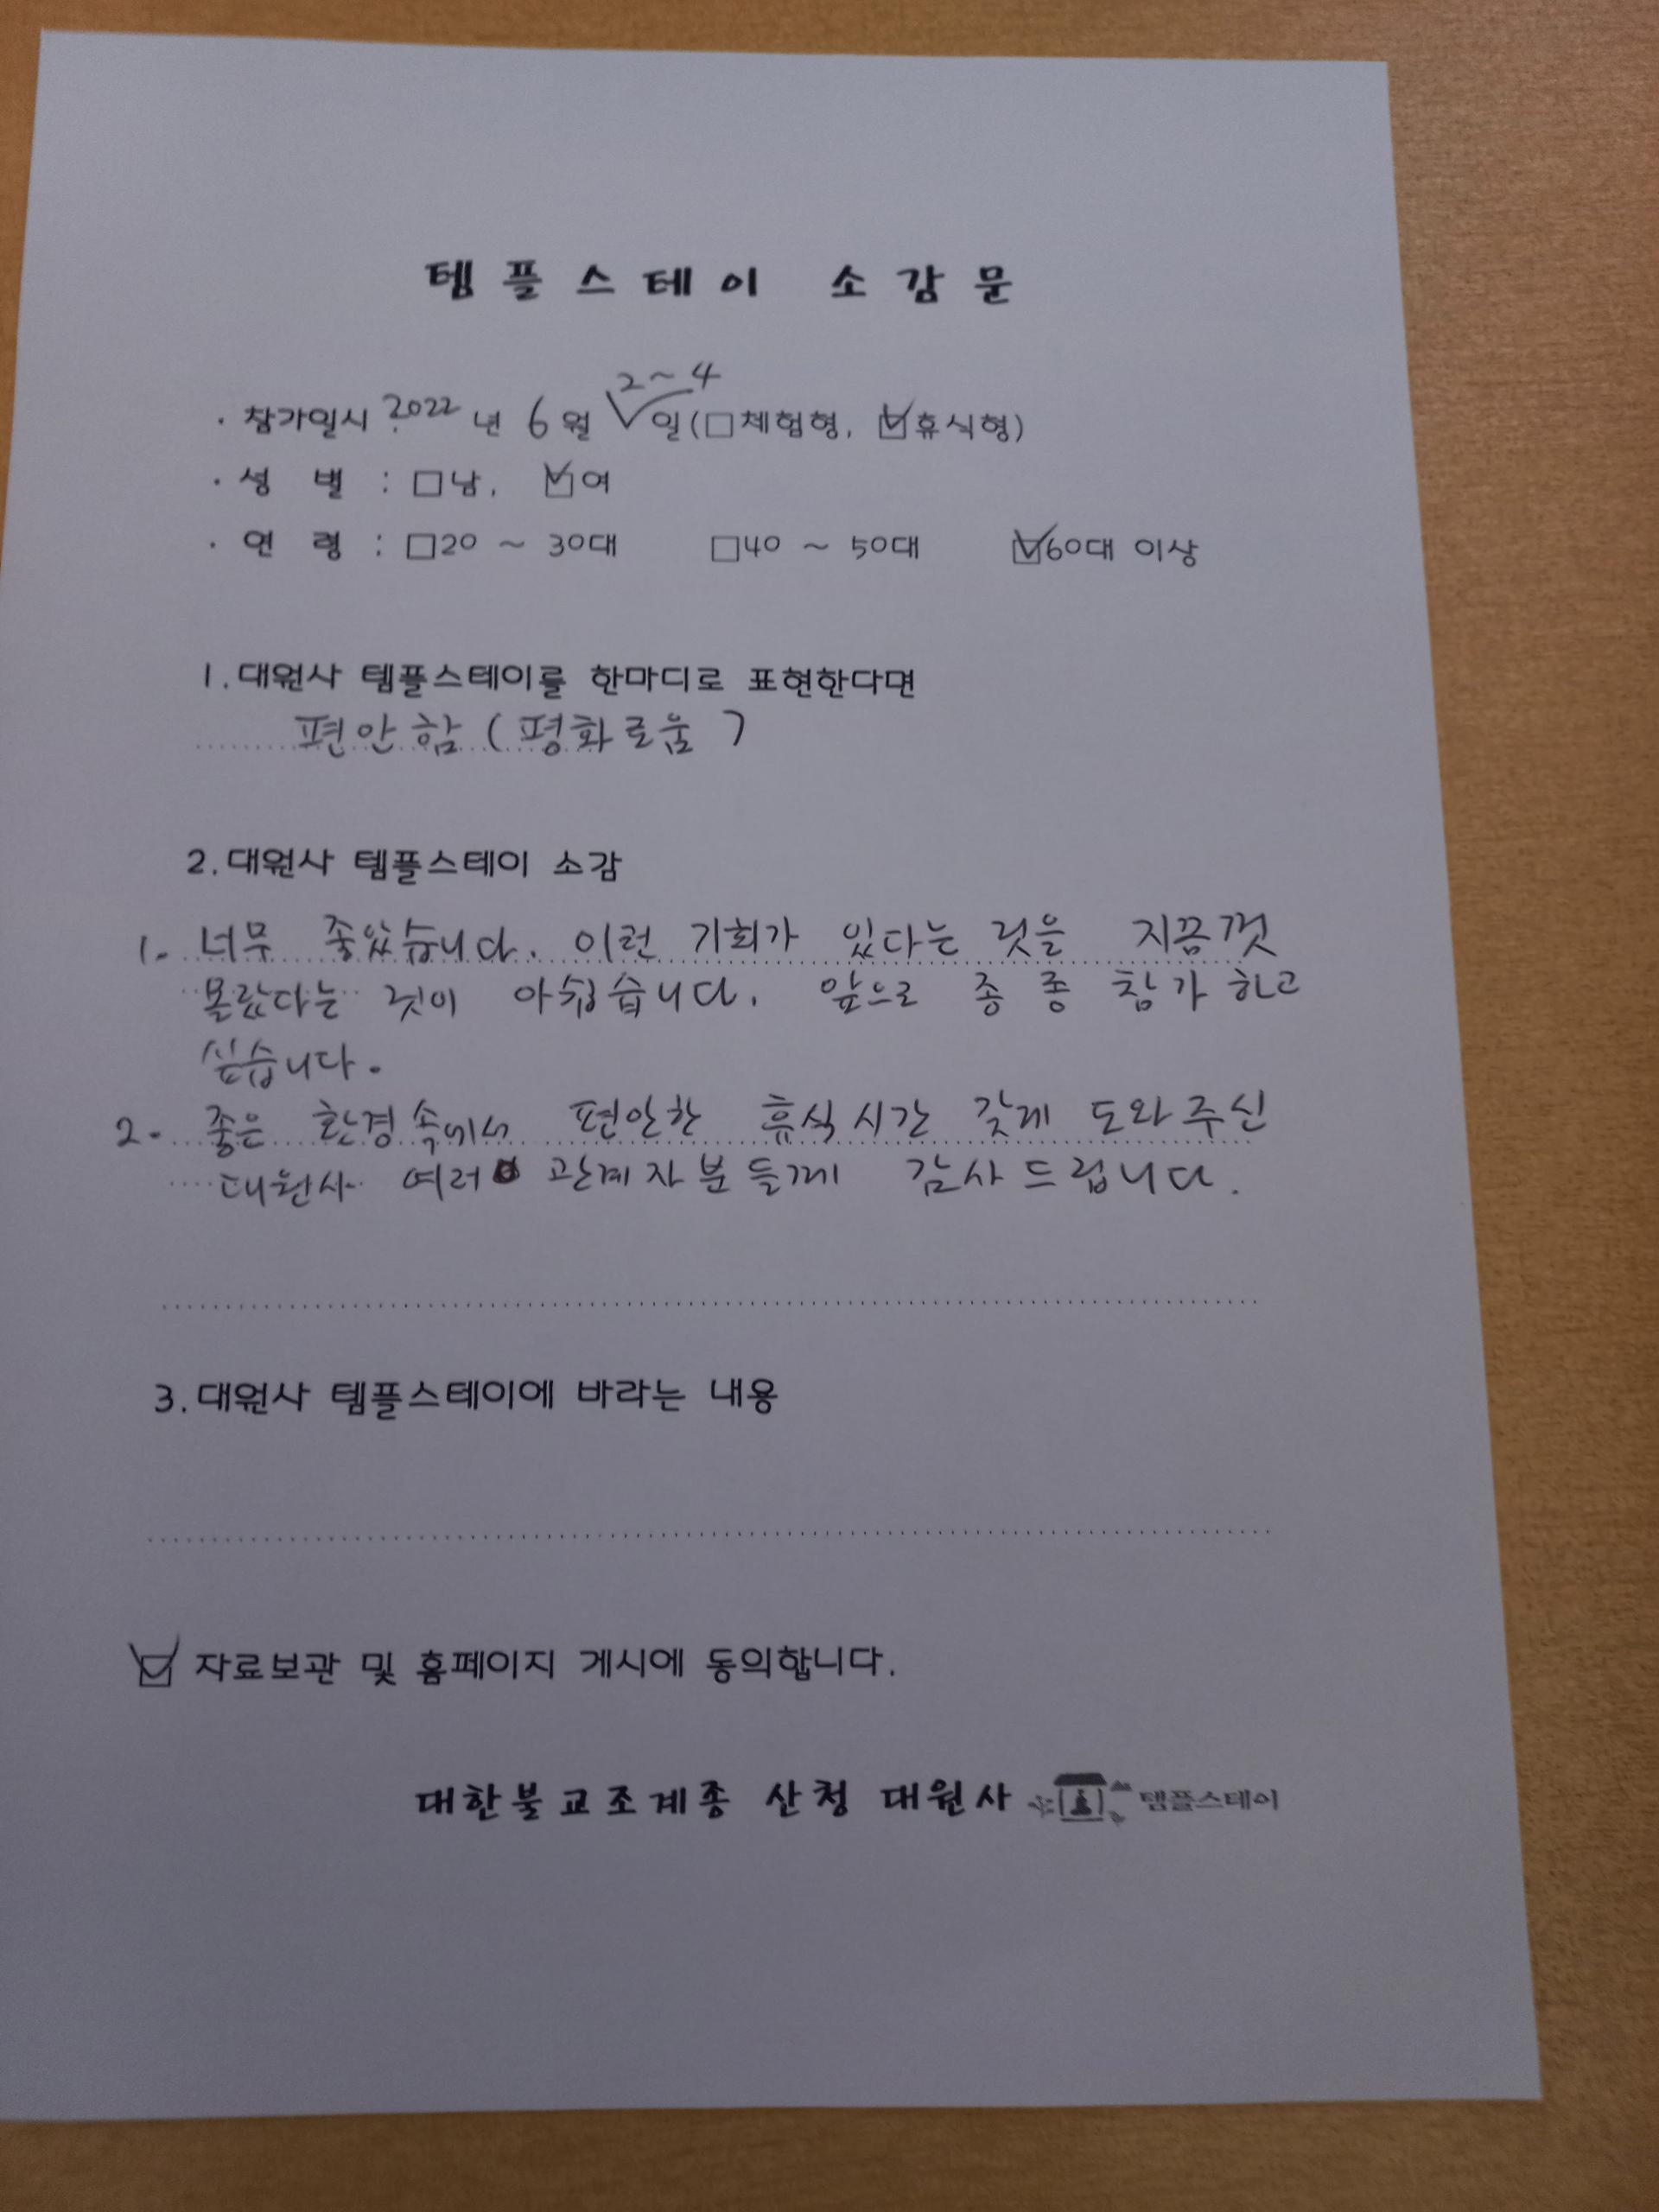 템플스테이 소감문
· 참가일시 2022년 6월 2~4일(□체험형, ☑휴식형)
· 성 별 : □남, ☑여
· 연 령 : □20 ~ 30대 □40 ~ 50대 ☑60대 이상
1.대원사 템플스테이를 한마디로 표현한다면
편안함 (평화로움)
2.대원사 템플스테이 소감
1. 너무 좋았습니다. 이런 기회가 있다는 것을 지끔껏
몰랐다는 것이 아쉽습니다. 앞으로 종종 참가하고
싶습니다.
2. 좋은 환경속에서 편안한 휴식시간 갖게 도와주신
대원사 여러 관계자분들께 감사드립니다.
3.대원사 템플스테이에 바라는 내용
☑ 자료보관 및 홈페이지 게시에 동의합니다.
대한불교조계종 산청 대원사 템플스테이